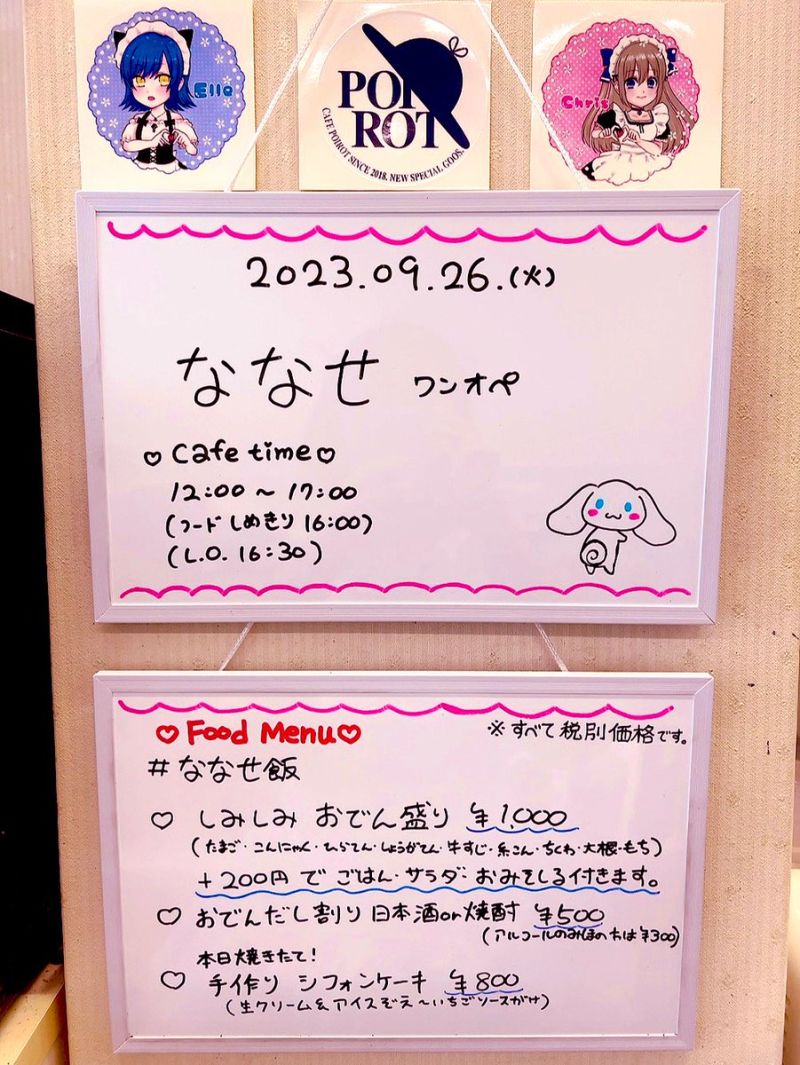 Elle
POIROT
CAFE POIROT SINCE 2018. NEW SPECIAL GOOS.
Chris
2023.09.26.(火)
ななせ ワンオペ
♡ Cafe time ♡
12:00 ~ 17:00
(フードしめきり 16:00)
(L.O. 16:30)
♡ Food Menu ♡
※すべて税別価格です。
#ななせ飯
♡ しみしみ おでん盛り ¥1,000
(たまご・こんにゃく・ひらてん・しょうがてん・牛すじ・糸こん・ちくわ・大根・もち)
+200円で ごはん・サラダ・おみそしる付きます。
♡ おでんだし割り 日本酒or焼酎 ¥500
(アルコールのみほの方は¥300)
本日焼きたて!
♡ 手作り シフォンケーキ ¥800
(生クリーム&アイスぞえ〜いちごソースがけ)